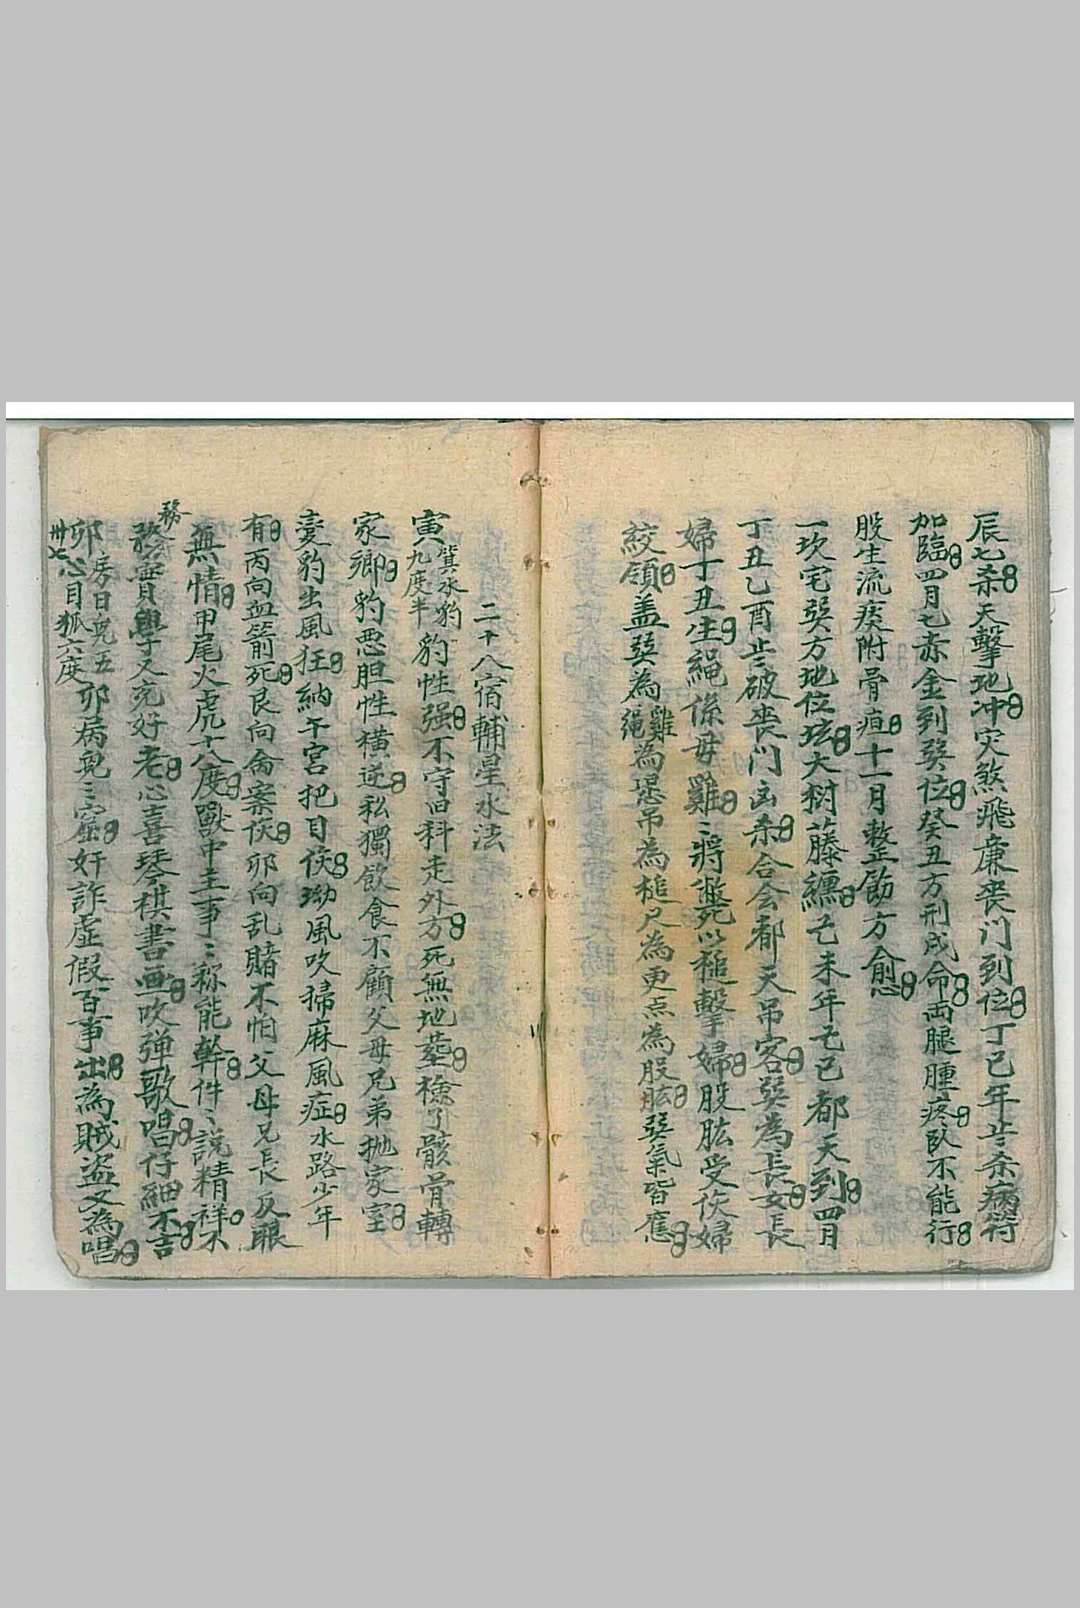 辰七杀天擊地冲灾煞飛廉喪门到位丁巳年岦杀病符
加臨四月七赤金到巽位癸丑方刑戌命両腿腫疼臥不能行
股生流痰附骨疽十一月整飭方愈
一坎宅巽方地位垓大樹藤纏乞未年乞巳都天到四月
丁丑乙酉岦破喪门凶杀合会都天吊客巽為長女長
婦丁丑生繩係母雞ミ將斃死以槌擊婦股肱受伤婦
絞領盖巽為雞繩為退吊為槌尺為更点為股肱巽氣皆應
二十八宿輔星水法
寅箕水豹九度半豹性强不守旧料走外方死無地塟檢了骸骨轉
家鄉豹悪胆性横逆私獨飲食不顧父母兄弟拋家室
妻豹出風狂納午宮把目伤坳風吹掃麻風症水路少年
有丙向血箭死艮向侖案伤卯向乱賭不怕父母兄長反眼
無情甲尾火虎十八度獸中主事ミ称能幹件ミ說精祥不
務實學又充好老心喜琴棋書画吹弹歌唱仔細不吉
卯房日兎五卅七心月狐六度卯病兎三窟奸詐虚假百事出為賊盗又為唱